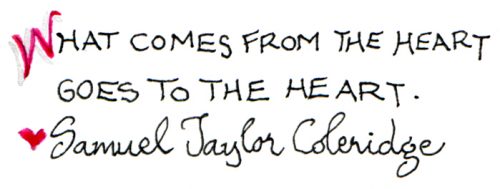 WHAT COMES FROM THE HEART
GOES TO THE HEART.
♥ Samuel Taylor Coleridge